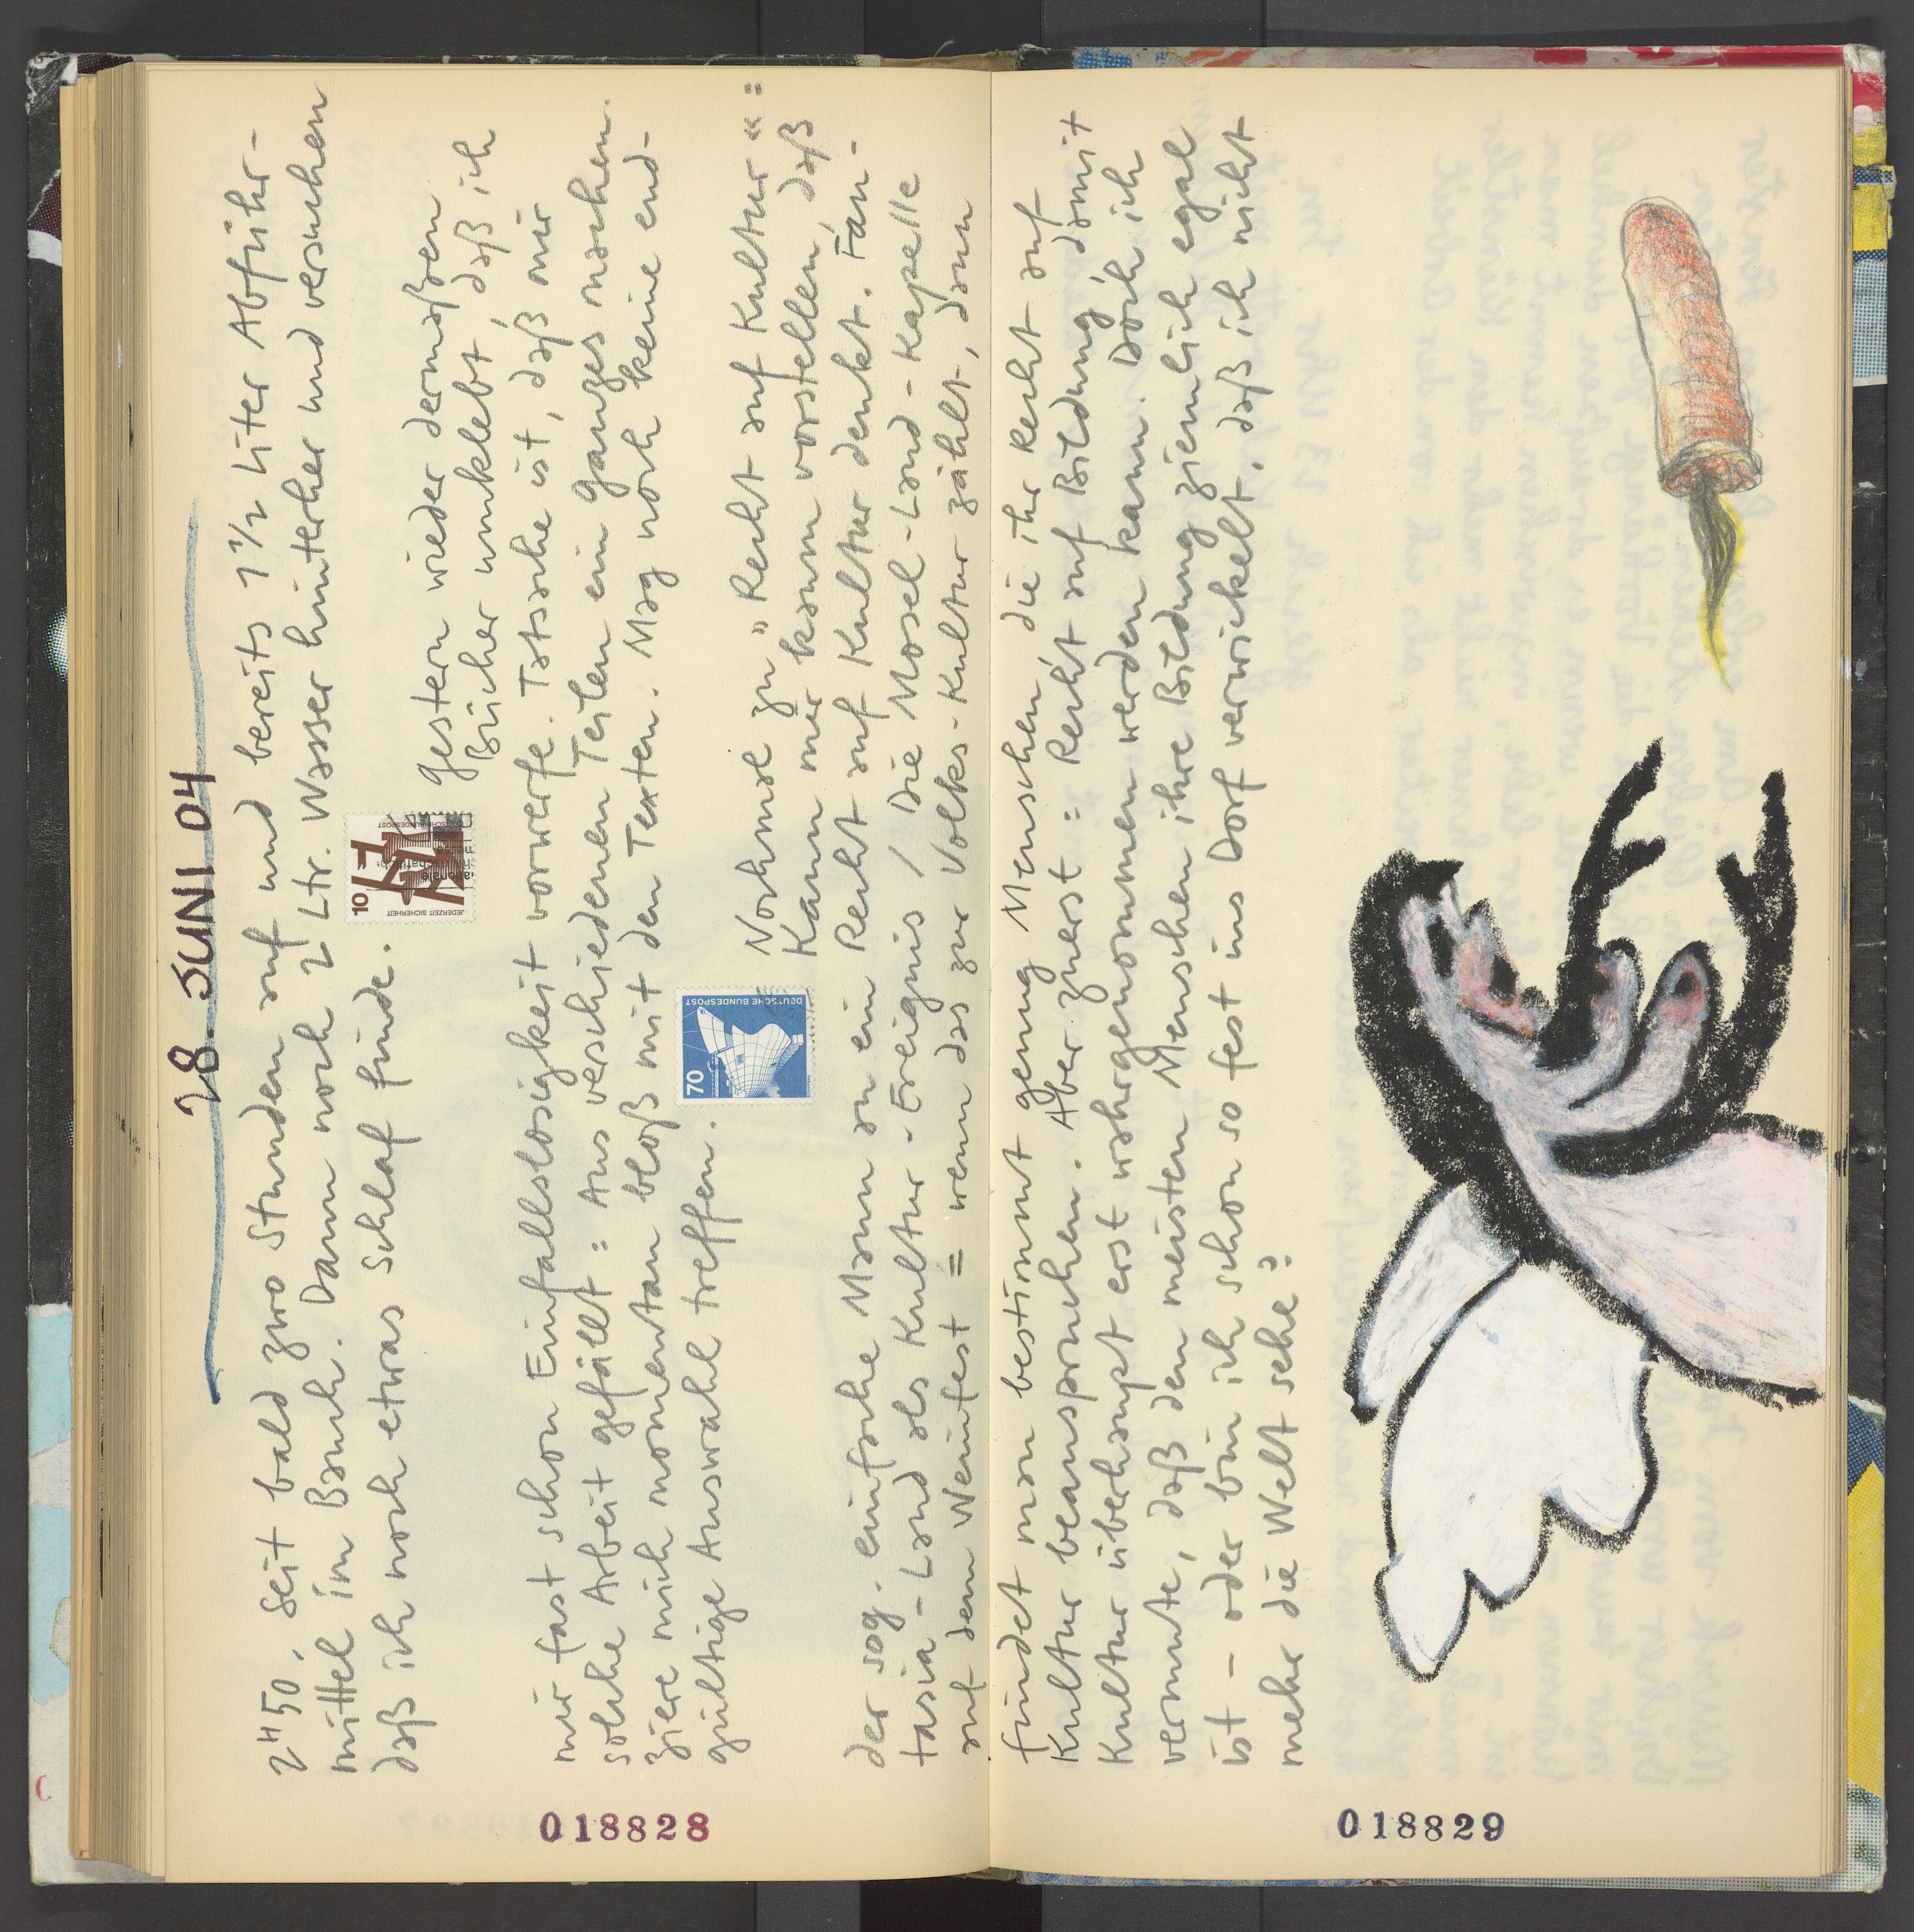 28. JUNI 04
2 H 50, seit bald zwo Stunden auf und bereits 1 1/2 Liter Abführ-
mittel im Bauch. Dann noch 2 Ltr. Wasser hinterher und versuchen
daß ich noch etwas Schlaf finde.
10
JEDERZEIT SICHERHEIT
DEUTSCHE BUNDESPOST
gestern wieder dermaßen
Bücher umklebt, daß ich
mir fast schon Einfallslosigkeit vorwerfe. Tatsache ist, daß mir
solche Arbeit gefällt = Aus verschiedenen Teilen ein ganzes machen.
ziere mich momentan bloß mit den Texten. Mag noch keine end-
gültige Auswahl treffen.
70
DEUTSCHE BUNDESPOST
Nochmal zu „Recht auf Kultur“ =
Kann mir kaum vorstellen, daß
der sog. einfache Mann an ein Recht auf Kultur denkt. Fan-
tasia-Land als Kultur-Ereignis / Die Mosel-Land-Kapelle
auf dem Weinfest = wenn das zur Volks-Kultur zählt, dann
findet man bestimmt genug Menschen, die ihr Recht auf
Kultur beanspruchen. Aber zuerst = Recht auf Bildung, damit
Kultur überhaupt erst wahrgenommen werden kann. Doch ich
vermute, daß den meisten Menschen ihre Bildung ziemlich egal
ist - oder bin ich schon so fest ins Dorf verwickelt, daß ich nicht
mehr die Welt sehe?
018828
018829